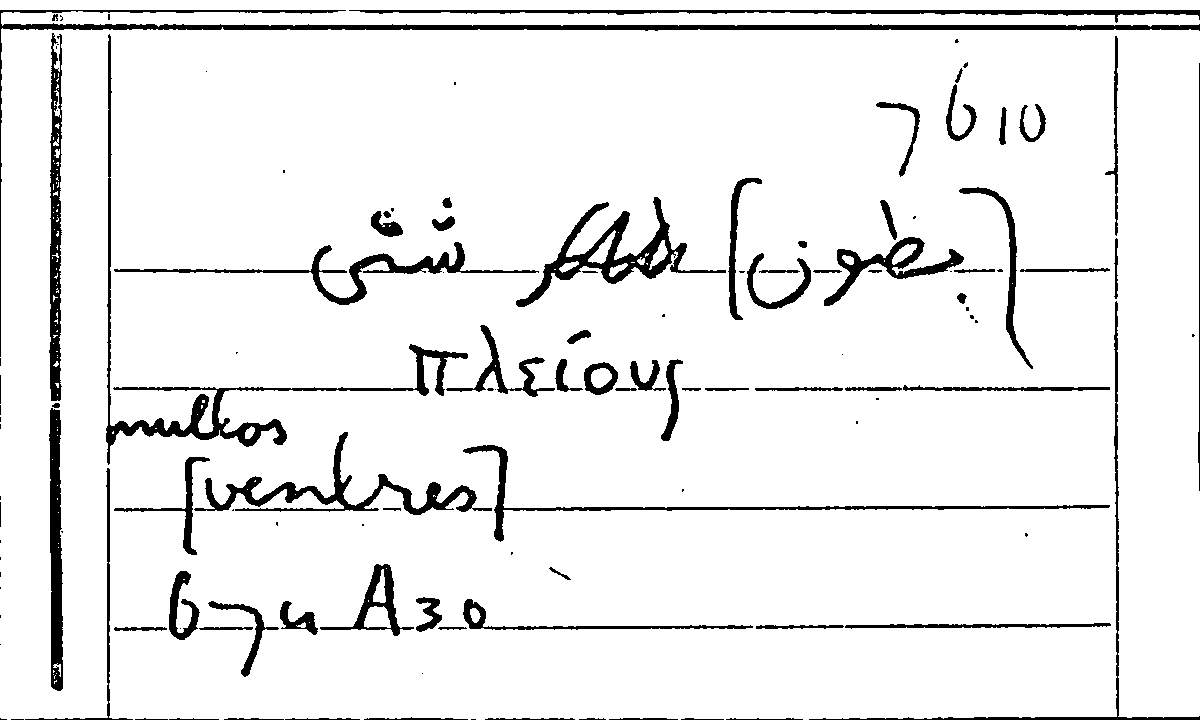 7610
[بطون] شتى
πλείους
multos
[ventres]
674 A30